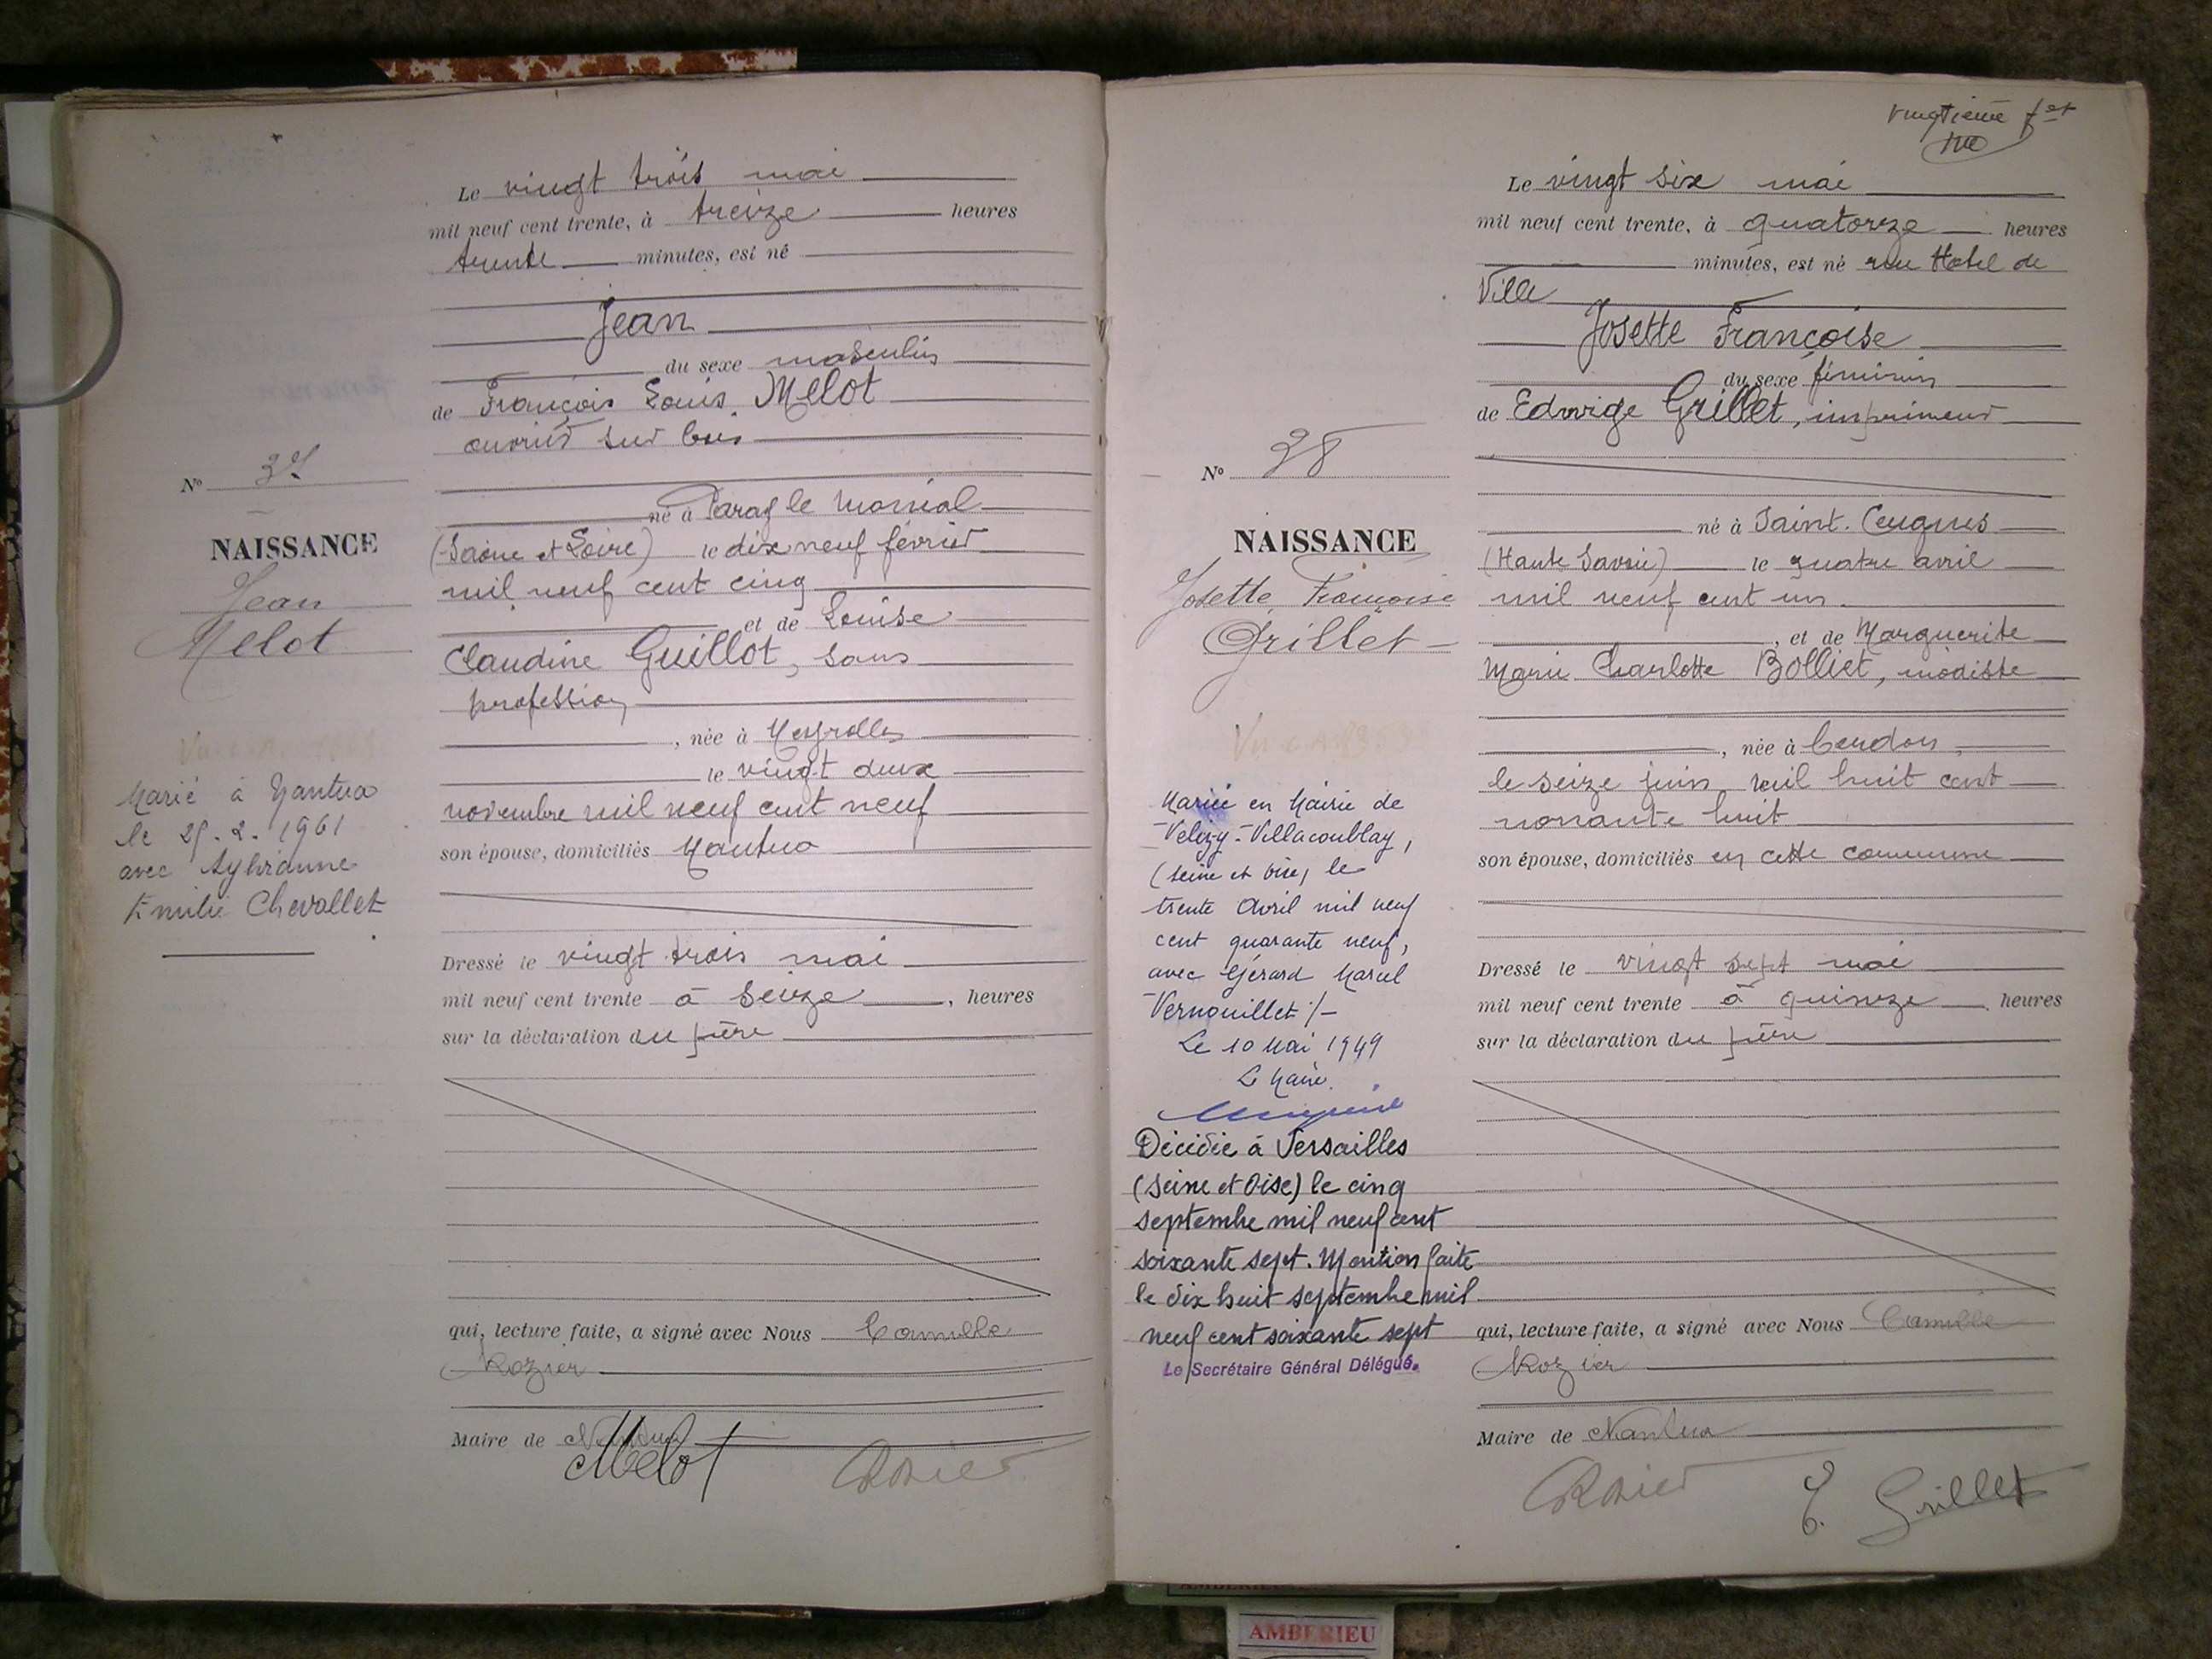 Le vingt trois mai
mil neuf cent trente, à treize heures
trente minutes, est né
Jean
du sexe masculin
de François Louis Melot
ouvrier sur bois
né à Paray le Monial
(Saône et Loire) le dix neuf février
mil neuf cent cinq
et de Louise
Claudine Guillot, sans
profession
, née à Meyrolles
le vingt deux
novembre mil neuf cent neuf
son épouse, domiciliés Nantua
Dressé le vingt trois mai
mil neuf cent trente à seize, heures
sur la déclaration du père
qui, lecture faite, a signé avec Nous Camille
Rozier
Maire de Nantua
Melot Rozier
Nº 37
NAISSANCE
Jean
Melot
Marié à Nantua
le 25.2.1961
avec Sylvianne
Emilie Chevallet
vingtième f et
Le vingt six mai
mil neuf cent trente, à quatorze heures
minutes, est né rue Hotel de
Ville
Josette Françoise
du sexe féminin
de Edwige Grillet, imprimeur
né à Saint. Cergues
(Haute Savoie) le quatre avril
mil neuf cent un.
, et de Marguerite
Marie Charlotte Bolliet, modiste
, née à Cerdon,
le seize juin mil huit cent
nonante huit
son épouse, domiciliés en cette commune
Dressé le vingt sept mai
mil neuf cent trente à quinze heures
sur la déclaration du père
qui, lecture faite, a signé avec Nous Camille
Rozier
Maire de Nantua
Rozier E. Grillet
Nº 38
NAISSANCE
Josette Françoise
Grillet
Mariée en Mairie de
Velizy-Villacoublay,
(Seine et Oise) le
trente Avril mil neuf
cent quarante neuf,
avec Gérard Marcel
Vernouillet ./-
Le 10 Mai 1949
Le Maire.
Décédée à Versailles
(Seine et Oise) le cinq
septembre mil neuf cent
soixante sept. Mention faite
le dix huit septembre mil
neuf cent soixante sept
Le Secrétaire Général Délégué.
AMBERIEU